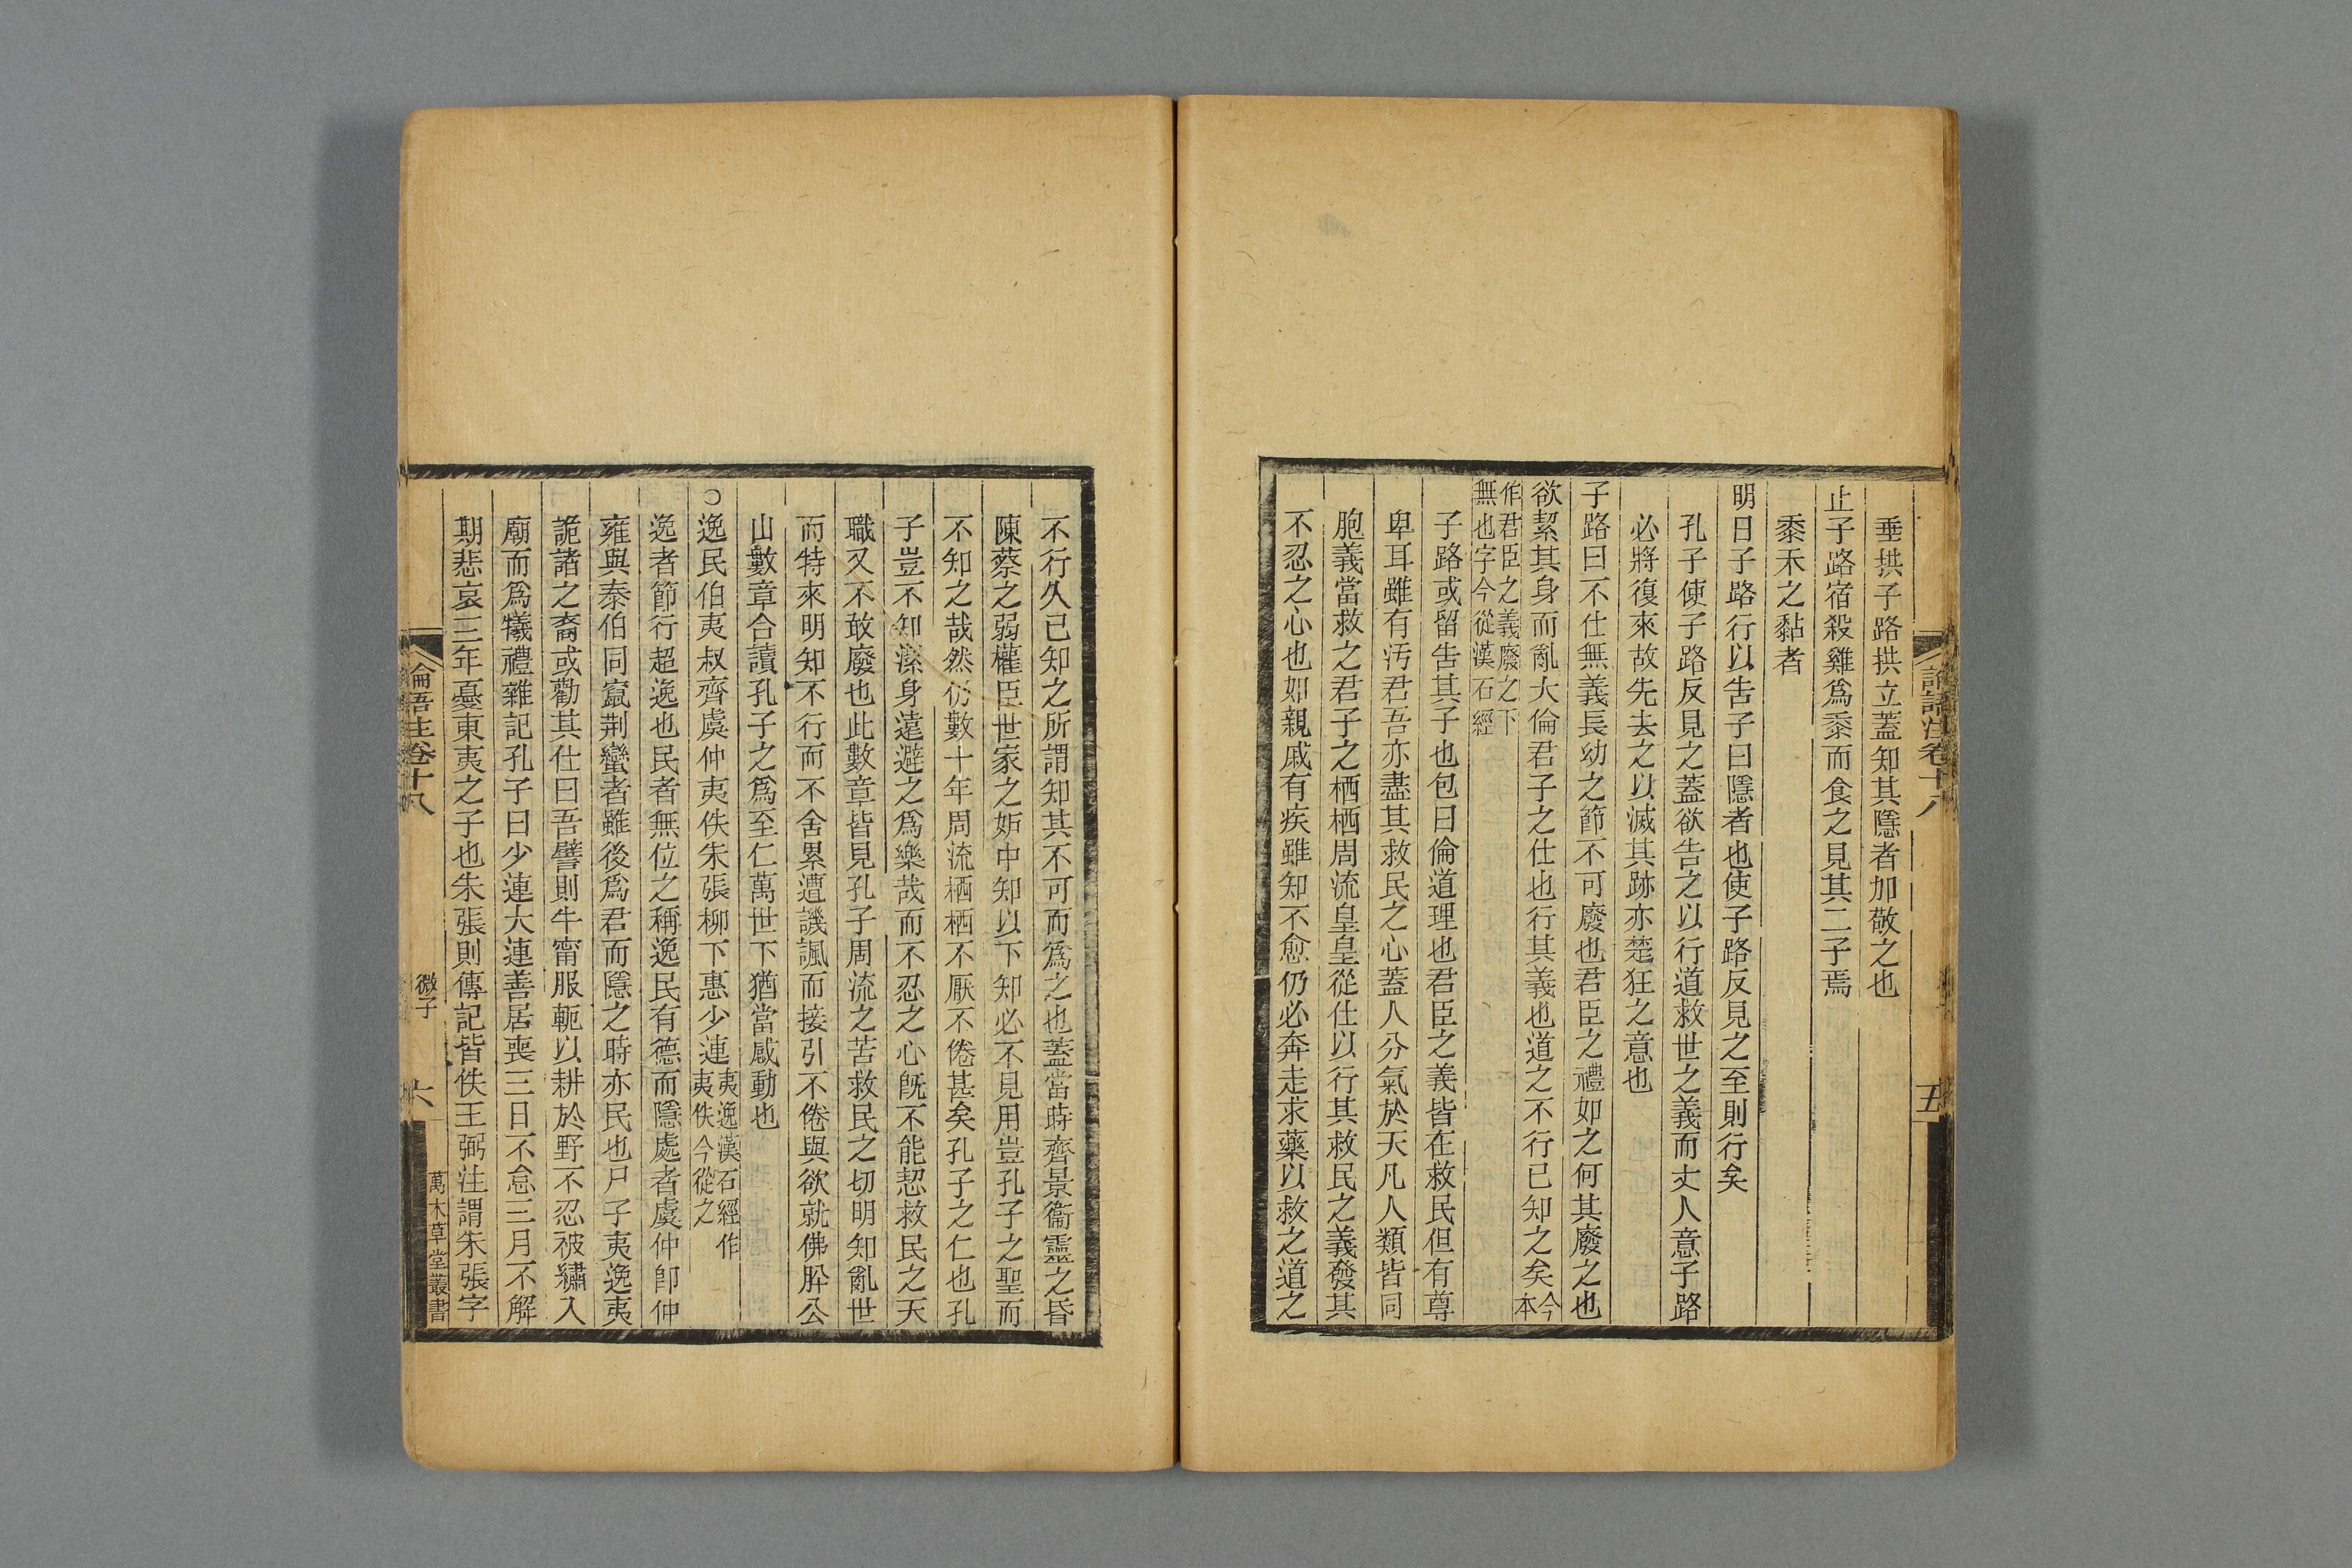 論語注卷十八
五
垂拱子路拱立蓋知其隱者加敬之也
止子路宿殺雞爲黍而食之見其二子焉
黍禾之黏者
明日子路行以告子曰隱者也使子路反見之至則行矣
孔子使子路反見之蓋欲告之以行道救世之義而丈人意子路
必將復來故先去之以滅其跡亦楚狂之意也
子路曰不仕無義長幼之節不可廢也君臣之禮如之何其廢之也
欲絜其身而亂大倫君子之仕也行其義也道之不行已知之矣今本
作君臣之義廢之下
無也字今從漢石經
子路或留告其子也包曰倫道理也君臣之義皆在救民但有尊
卑耳雖有汚君吾亦盡其救民之心蓋人分氣於天凡人類皆同
胞義當救之君子之栖栖周流皇皇從仕以行其救民之義發其
不忍之心也如親戚有疾雖知不愈仍必奔走求藥以救之道之
不行久已知之所謂知其不可而爲之也蓋當時齊景衞靈之昏
陳蔡之弱權臣世家之妬中知以下知必不見用豈孔子之聖而
不知之哉然仍數十年周流栖栖不厭不倦甚矣孔子之仁也孔
子豈不知潔身遠避之爲樂哉而不忍之心旣不能恝救民之天
職又不敢廢也此數章皆見孔子周流之苦救民之切明知亂世
而特來明知不行而不舍累遭譏諷而接引不倦與欲就佛肸公
山數章合讀孔子之爲至仁萬世下猶當感動也
○逸民伯夷叔齊虞仲夷佚朱張柳下惠少連夷逸漢石經作
夷佚今從之
逸者節行超逸也民者無位之稱逸民有德而隱處者虞仲卽仲
雍與泰伯同竄荆蠻者雖後爲君而隱之時亦民也尸子夷逸夷
詭諸之裔或勸其仕曰吾譬則牛甯服軛以耕於野不忍被繡入
廟而爲犧禮雜記孔子曰少連大連善居喪三日不怠三月不解
期悲哀三年憂東夷之子也朱張則傳記皆佚王弼注謂朱張字
論語注卷十八
微子
六
萬木草堂叢書